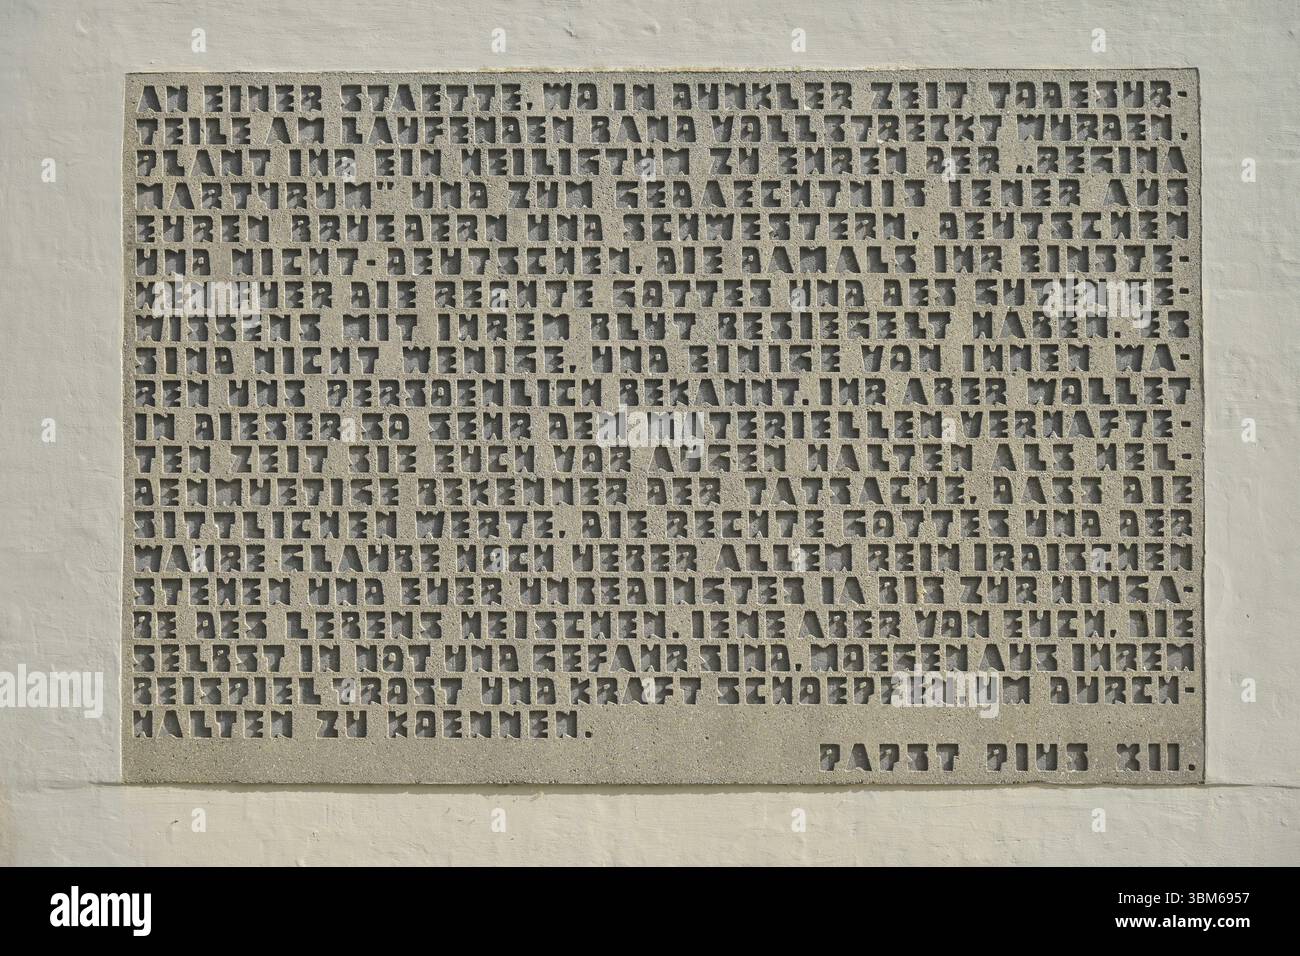 AN EINER STAETTE, WO IN DUNKLER ZEIT TODESUR-
TEILE AM LAUFENDEN BAND VOLLSTRECKT WURDEN,
PLANT IHR EIN HEILIGTUM ZU EHREN DER „REGINA
MARTYRUM" UND ZUM GEDAECHTNIS JENER AUS
EUREN BRUEDERN UND SCHWESTERN, DEUTSCHEN
UND NICHT-DEUTSCHEN, DIE DAMALS IHR EINSTE-
HEN FUER DIE RECHTE GOTTES UND DES GUTEN GE-
WISSENS MIT IHREM BLUT BESIEGELT HABEN. ES
SIND NICHT WENIGE, UND EINIGE VON IHNEN WA-
REN UNS PERSOENLICH BEKANNT. IHR ABER WOLLET
IN DIESER SO SEHR DEM MATERIELLEN VERHAFTE-
TEN ZEIT SIE EUCH VOR AUGEN HALTEN ALS HEL-
DENMUETIGE BEKENNER DER TATSACHE, DASS DIE
SITTLICHEN WERTE, DIE RECHTE GOTTES UND DER
WAHRE GLAUBE HOCH UEBER ALLEM REIN IRDISCHEN
STEHEN UND EUER UNBEDINGTES JA BIS ZUR HINGA-
BE DES LEBENS HEISCHEN. JENE ABER VON EUCH, DIE
SELBST IN NOT UND GEFAHR SIND, MOEGEN AUS IHREM
BEISPIEL TROST UND KRAFT SCHOEPFEN, UM DURCH-
HALTEN ZU KOENNEN.
PAPST PIUS XII.
alamy
Image ID: 3BM6957
www.alamy.com